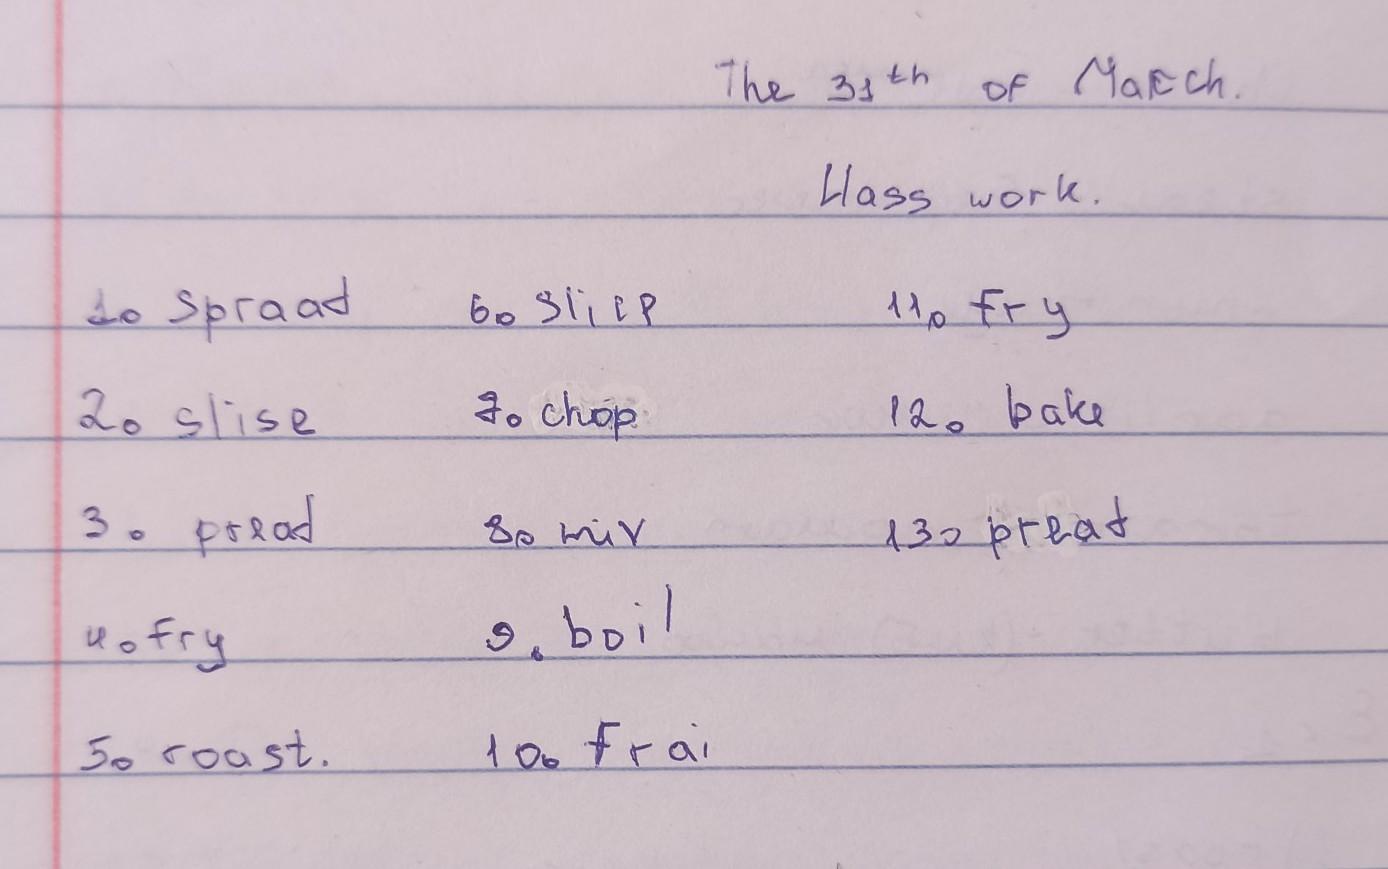 The 31th of March.
Class work.
1. Spraad 6. Slice 11. fry
2. slise 7. chop 12. bake
3. pread 8. mix 13. pread
4. fry 9. boil
5. roast. 10. frai